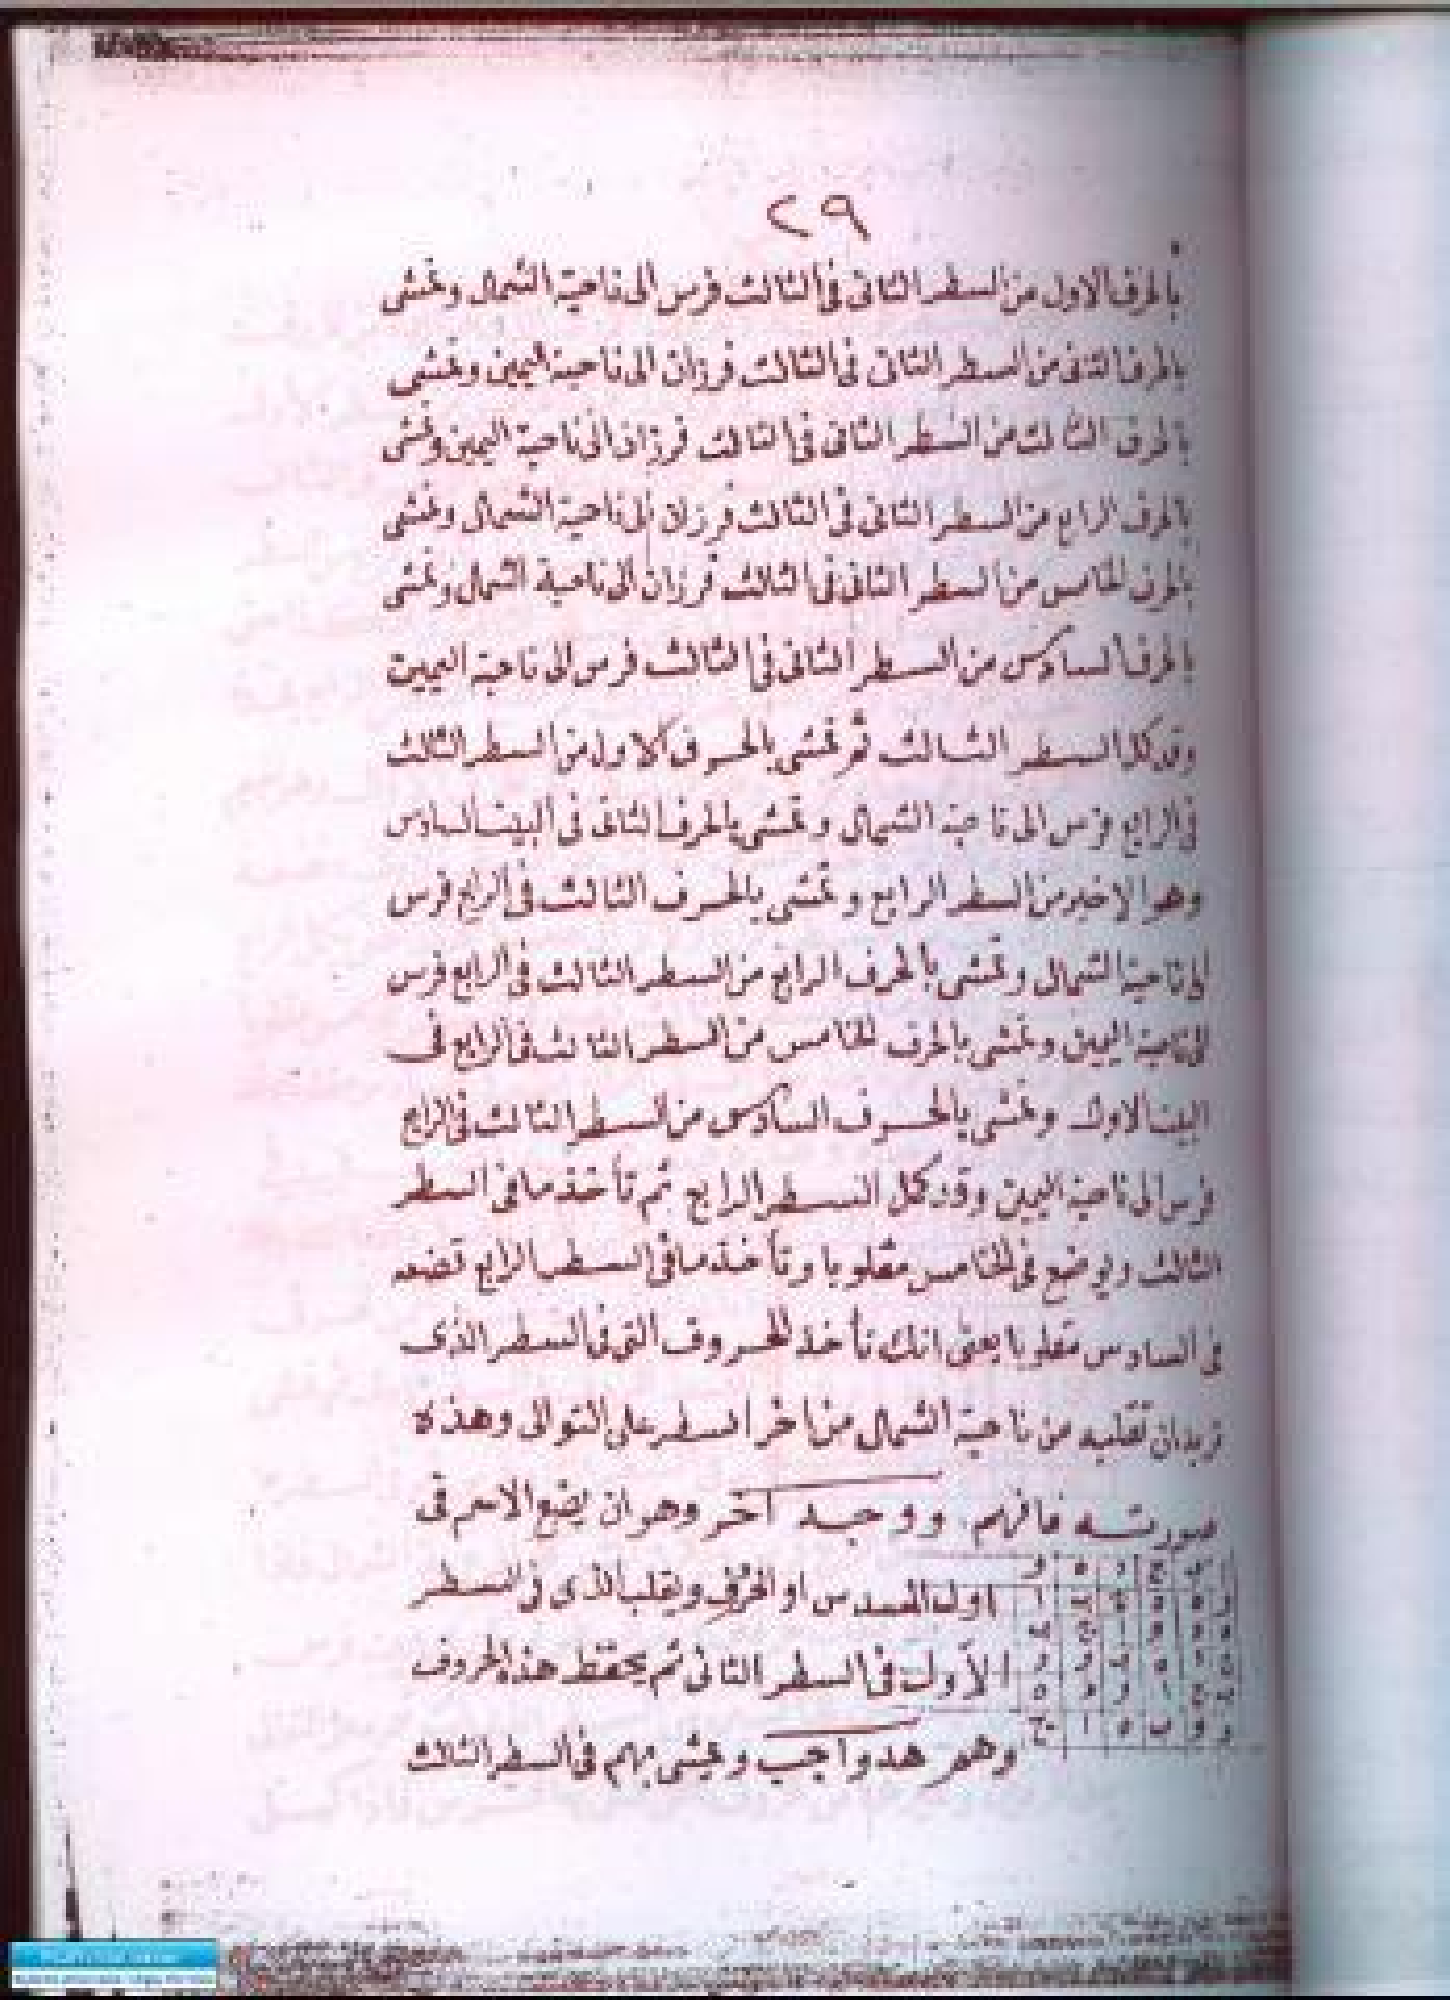 ٢٩
بالحرف الاول من السطر الثانى فى الثالث فرس الى ناحية الشمال وتمشى
بالحرف الثانى من السطر الثانى فى الثالث فرزان الى ناحية اليمين وتمشى
بالحرف الثالث من السطر الثانى فى الثالث فرزان الى ناحية اليمين وتمشى
بالحرف الرابع من السطر الثانى فى الثالث فرزان الى ناحية الشمال وتمشى
بالحرف الخامس من السطر الثانى فى الثالث فرزان الى ناحية الشمال وتمشى
بالحرف السادس من السطر الثانى فى الثالث فرس الى ناحية اليمين
وقد كمل السطر الثالث ثم تمشى بالحرف الاول من السطر الثالث
فى الرابع فرس الى ناحية الشمال وتمشى بالحرف الثانى فى البيت السادس
وهو الاخير من السطر الرابع وتمشى بالحرف الثالث فى الرابع فرس
الى ناحية الشمال وتمشى بالحرف الرابع من السطر الثالث فى الرابع فرس
الى ناحية اليمين وتمشى بالحرف الخامس من السطر الثالث فى الرابع فى
البيت الاول وتمشى بالحرف السادس من السطر الثالث فى الرابع
فرس الى ناحية اليمين وقد كمل السطر الرابع ثم تأخذ ما فى السطر
الثالث ويوضع فى الخامس مقلوبا وتأخذ ما فى السطر الرابع تضعه
فى السادس مقلوبا يعنى انك تأخذ الحروف التى فى السطر الذى
تريد ان تقلبه من ناحية الشمال من اخر السطر على التوالى وهذه
صورته فافهم ووجه آخر وهو ان يضع الاسم فى
اول المسدس او الحرف ويقلب الذى فى السطر
الأول فى السطر الثانى ثم يحفظ هذه الحروف
وهم هدواجب ويمشى بهم فى السطر الثالث
ا ب ج د ه و